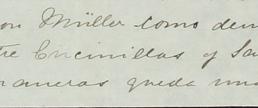 on Müller como dem
tre Encinillas y Sa
raneras queda una